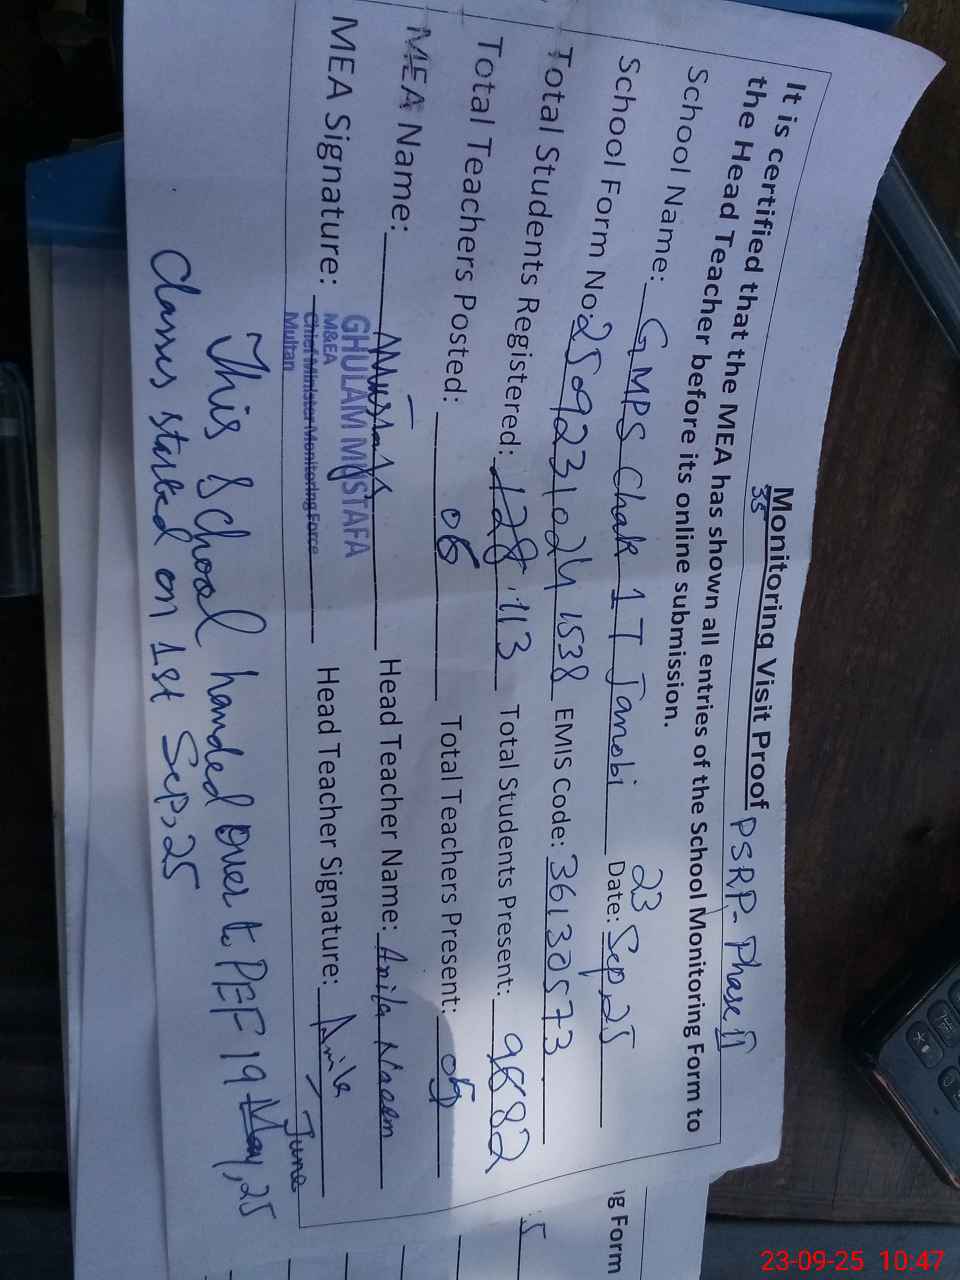 Monitoring Visit Proof PSRP- Phase II
35
It is certified that the MEA has shown all entries of the School Monitoring Form to
the Head Teacher before its online submission.
School Name: GMPS Chak 1T Janobi Date: 23 Sep, 25
School Form No: 25092310241538 EMIS Code: 36130573
Total Students Registered: 128 113 Total Students Present: 82
Total Teachers Posted: 05 Total Teachers Present: 05
MEA Name: Head Teacher Name: Anila Naeem
MEA Signature: Head Teacher Signature: Anila
GHULAM MUSTAFA
M&EA
Chief Minister Monitoring Force
Multan
This School handed over to PEF 19 May, 25
June
Classes started on 1st Sep, 25
ng Form
23-09-25 10:47